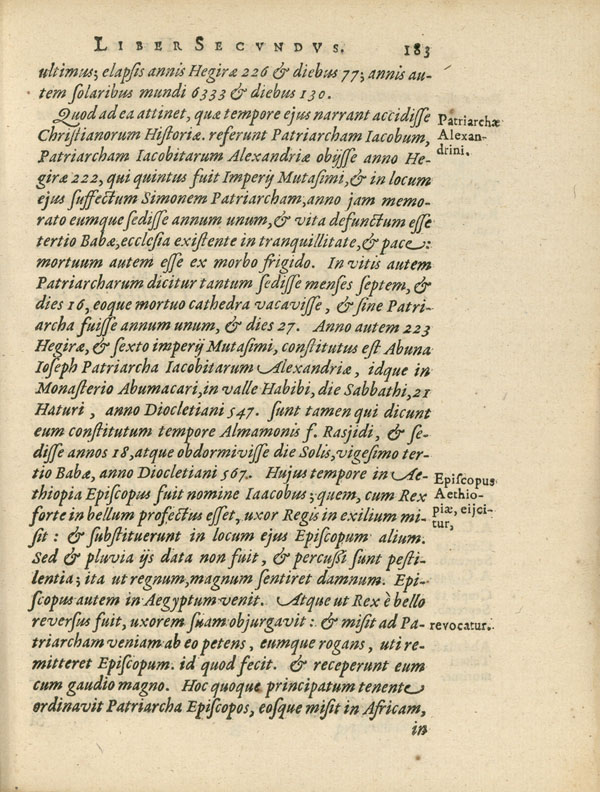 LIBER SECVNDVS. 183
ultimus; elapsis annis Hegiræ 226 & diebus 77; annis au-
tem solaribus mundi 6333 & diebus 130.
Quod ad ea attinet, quæ tempore ejus narrant accidisse
Christianorum Historiæ. referunt Patriarcham Iacobum,
Patriarcham Iacobitarum Alexandriæ obijsse anno He-
giræ 222, qui quintus fuit Imperij Mutasimi, & in locum
ejus suffectum Simonem Patriarcham, anno jam memo-
rato eumque sedisse annum unum, & vita defunctum esse
tertio Babæ, ecclesia existente in tranquillitate, & pace:
mortuum autem esse ex morbo frigido. In vitis autem
Patriarcharum dicitur tantum sedisse menses septem, &
dies 16, eoque mortuo cathedra vacavisse, & sine Patri-
archa fuisse annum unum, & dies 27. Anno autem 223
Hegiræ, & sexto imperij Mutasimi, constitutus est Abuna
Ioseph Patriarcha Iacobitarum Alexandriæ, idque in
Monasterio Abumacari, in valle Habibi, die Sabbathi, 21
Haturi, anno Diocletiani 547. sunt tamen qui dicunt
eum constitutum tempore Almamonis f. Rasjidi, & se-
disse annos 18, atque obdormivisse die Solis, vigesimo ter-
tio Babæ, anno Diocletiani 567. Hujus tempore in Ae-
thiopia Episcopus fuit nomine Iaacobus; quem, cum Rex
forte in bellum profectus esset, uxor Regis in exilium mi-
sit: & substituerunt in locum ejus Episcopum alium.
Sed & pluvia ijs data non fuit, & percussi sunt pesti-
lentia; ita ut regnum, magnum sentiret damnum. Epi-
scopus autem in Aegyptum venit. Atque ut Rex è bello
reversus fuit, uxorem suam objurgavit: & misit ad Pa-
triarcham veniam ab eo petens, eumque rogans, uti re-
mitteret Episcopum. id quod fecit. & receperunt eum
cum gaudio magno. Hoc quoque principatum tenente
ordinavit Patriarcha Episcopos, eosque misit in Africam,
in
Patriarchæ
Alexan-
drini.
Episcopus
Aethio-
piæ, eijci-
tur,
revocatur.